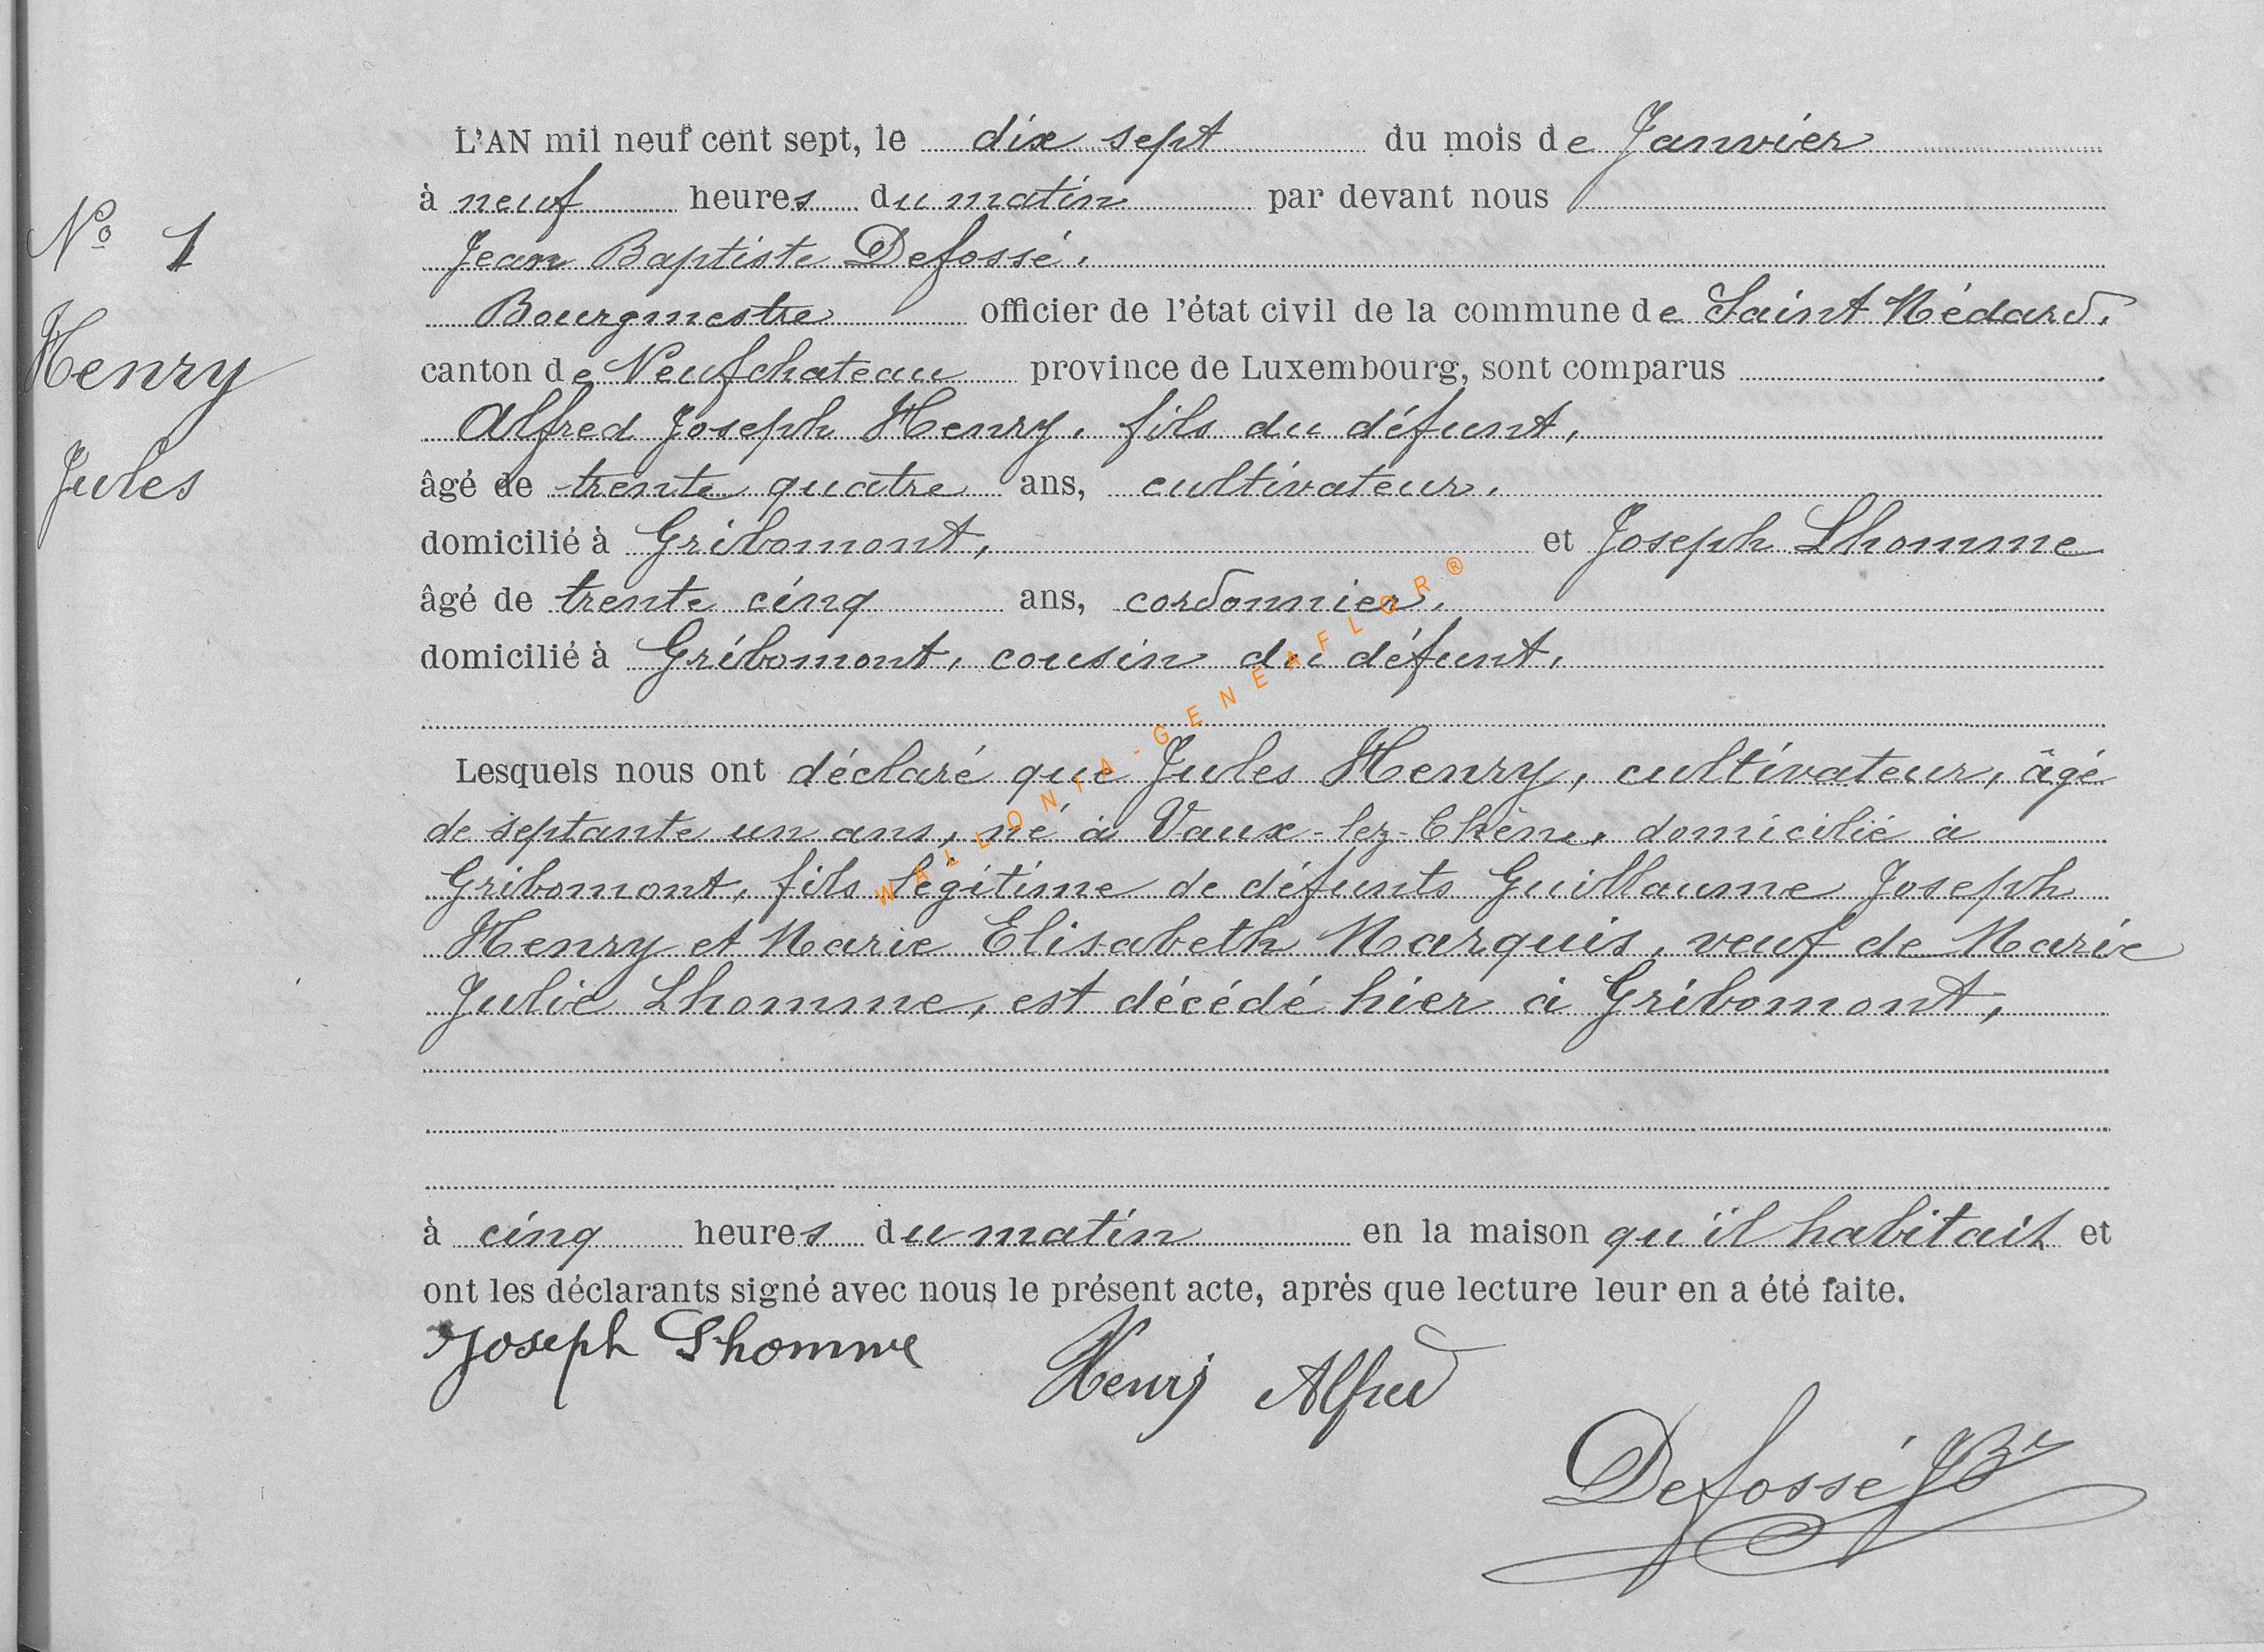 L'AN mil neuf cent sept, le dix sept du mois de Janvier
à neuf heures du matin par devant nous
Jean Baptiste Defossé,
Bourgmestre officier de l'état civil de la commune de Saint Médard,
canton de Neufchateau province de Luxembourg, sont comparus
Alfred Joseph Henry, fils du défunt,
âgé de trente quatre ans, cultivateur,
domicilié à Gribomont, et Joseph Lhomme
âgé de trente cinq ans, cordonnier,
domicilié à Gribomont, cousin du défunt,
Lesquels nous ont déclaré que Jules Henry, cultivateur, âgé
de septante un ans, né à Vaux-lez-Chêne, domicilié à
Gribomont, fils légitime de défunts Guillaume Joseph
Henry et Marie Elisabeth Marquis, veuf de Marie
Julie Lhomme, est décédé hier à Gribomont,
à cinq heures du matin en la maison qu'il habitait et
ont les déclarants signé avec nous le présent acte, après que lecture leur en a été faite.
Joseph Lhomme Henry Alfred
Defossé JBte
No 1
Henry
Jules
WALLONIA-GENEAFLOR®